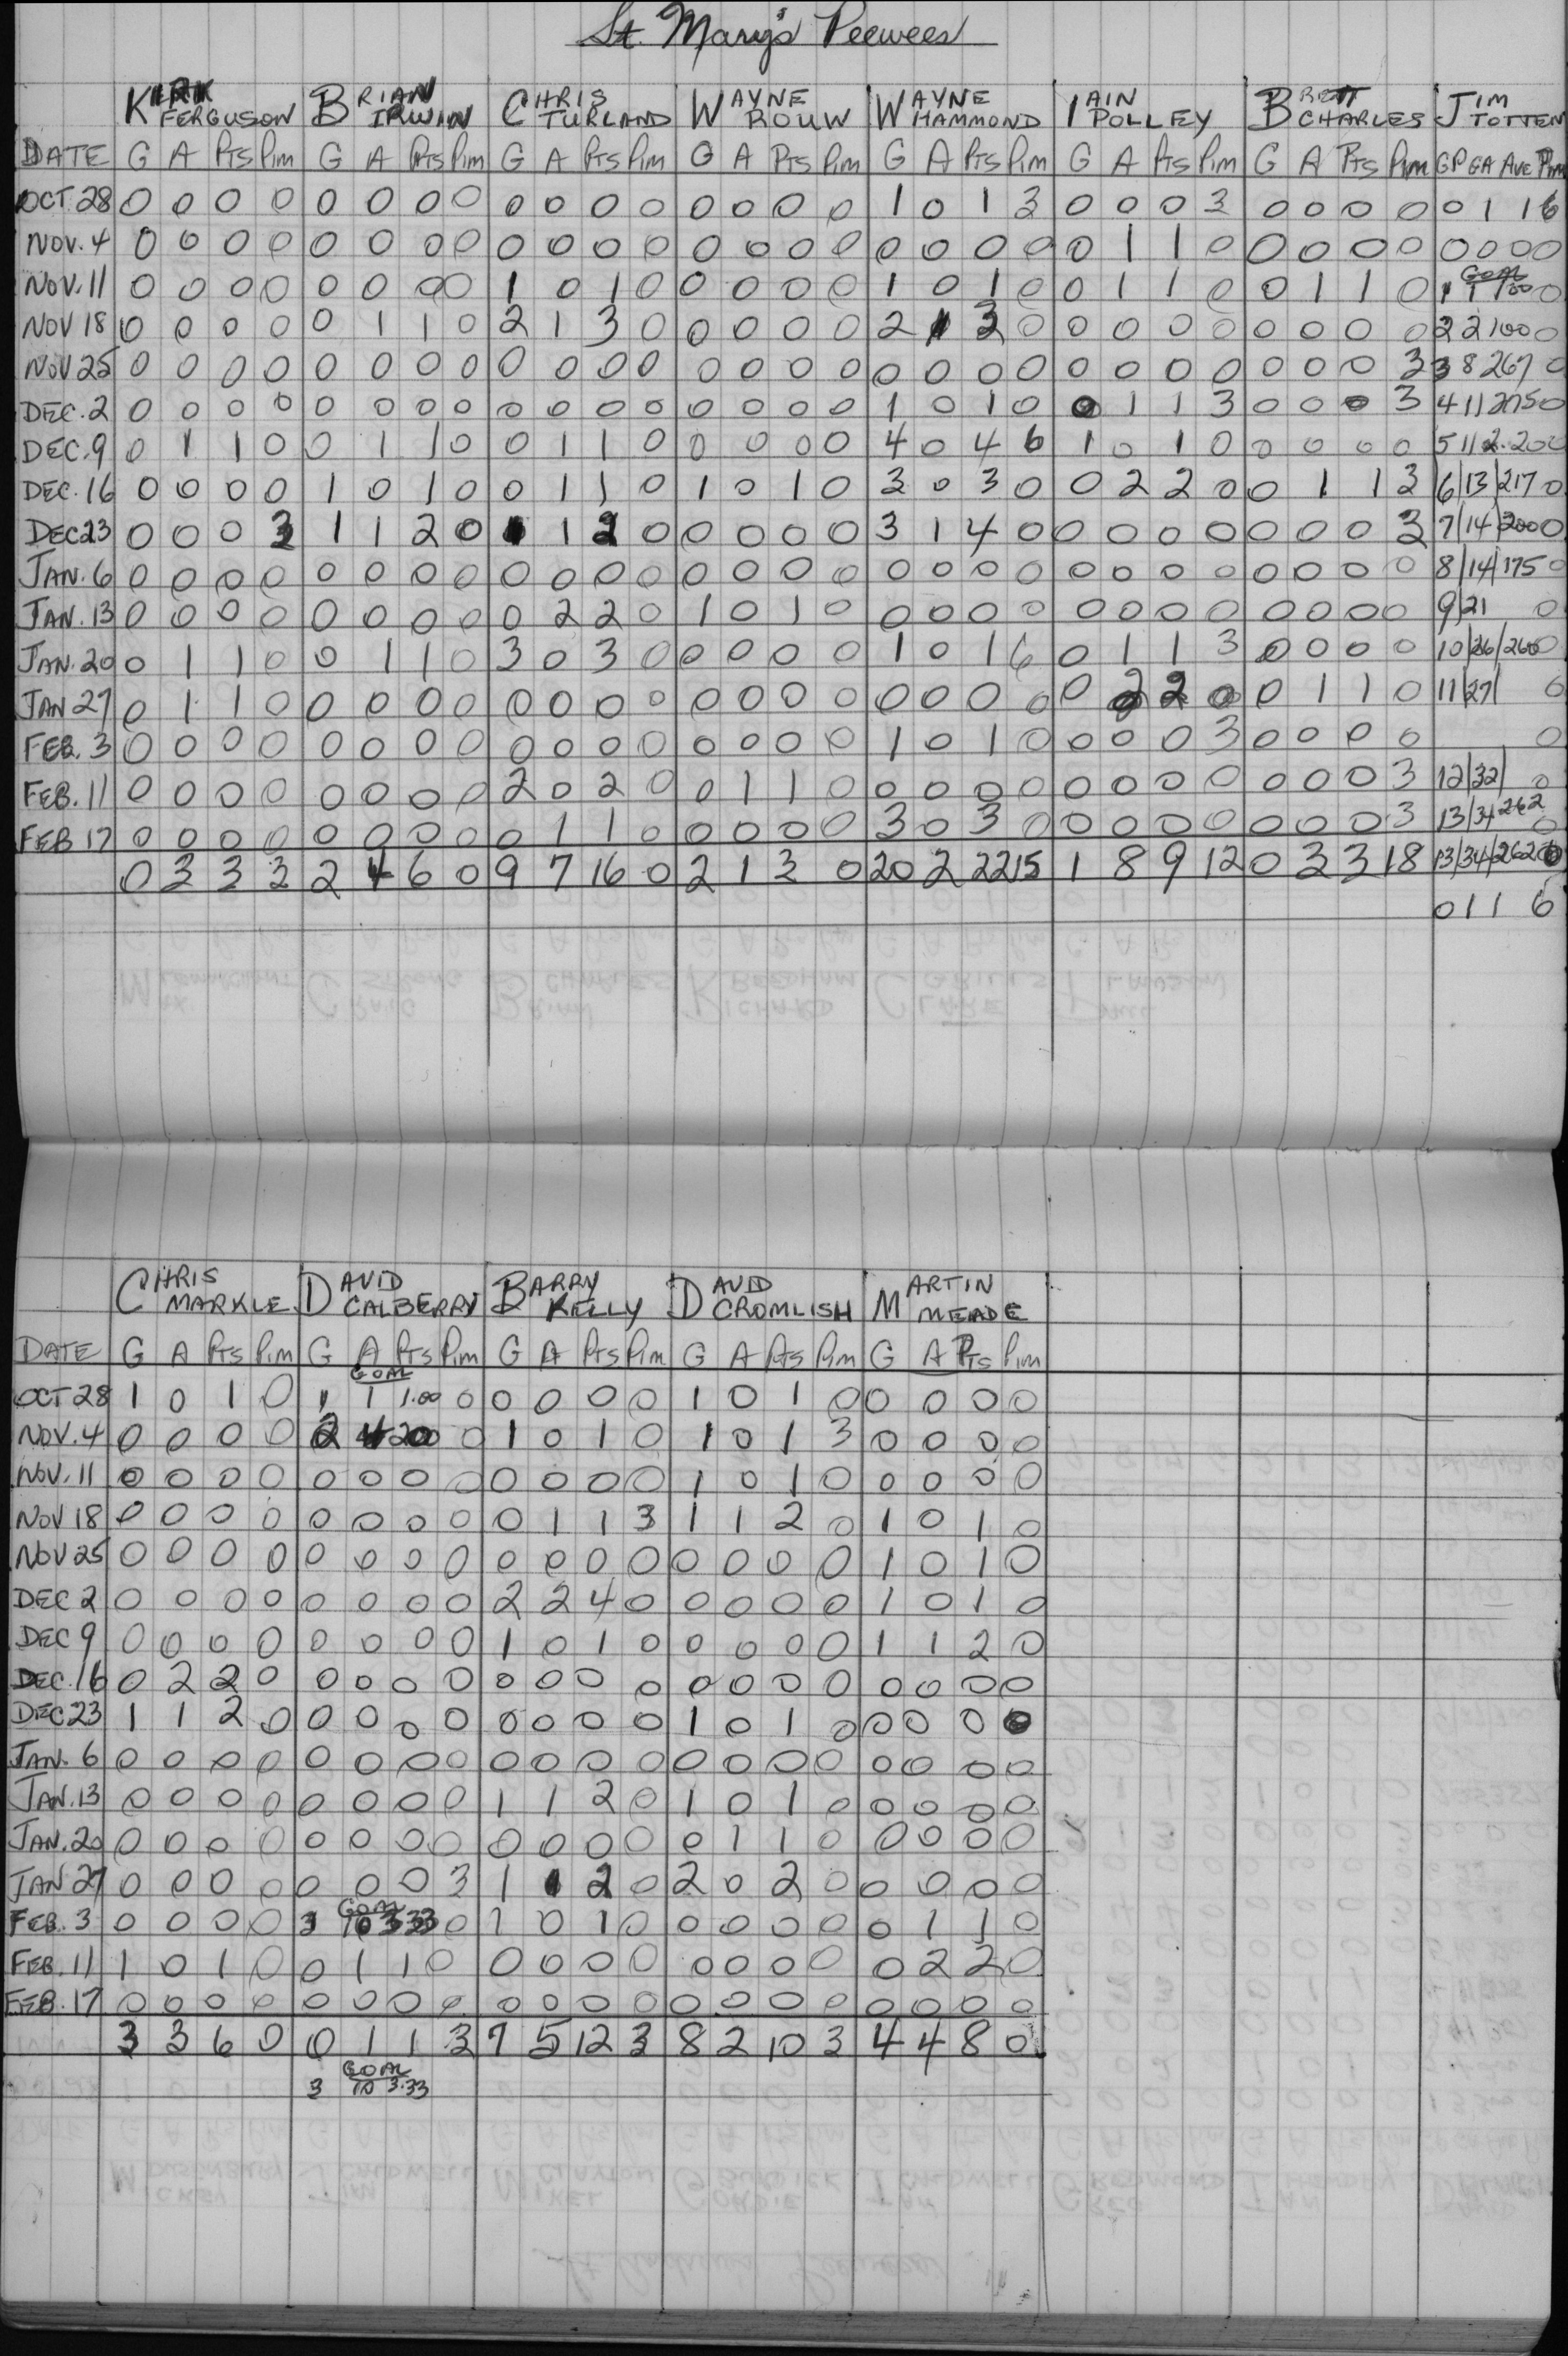 St. Mary's Peewees
KIRK FERGUSON BRIAN IRWIN CHRIS TURLAND WAYNE ROUW WAYNE HAMMOND IAIN POLLEY BRETT CHARLES JIM TOTTEN
DATE G A Pts Pim G A Pts Pim G A Pts Pim G A Pts Pim G A Pts Pim G A Pts Pim G A Pts Pim GP GA AVE Pim
OCT. 28 0 0 0 0 0 0 0 0 0 0 0 0 0 0 0 0 1 0 1 3 0 0 0 3 0 0 0 0 0 1 1 6
NOV. 4 0 0 0 0 0 0 0 0 0 0 0 0 0 0 0 0 0 0 0 0 0 1 1 0 0 0 0 0 0 0 0 0
NOV. 11 0 0 0 0 0 0 0 0 1 0 1 0 0 0 0 0 1 0 1 0 0 1 1 0 0 1 1 0 1 GOAL 1 1.00 0
NOV 18 0 0 0 0 0 1 1 0 2 1 3 0 0 0 0 0 2 1 3 0 0 0 0 0 0 0 0 0 2 2 1.00 0
NOV 25 0 0 0 0 0 0 0 0 0 0 0 0 0 0 0 0 0 0 0 0 0 0 0 0 0 0 0 3 3 8 267 0
DEC. 2 0 0 0 0 0 0 0 0 0 0 0 0 0 0 0 0 1 0 1 0 0 1 1 3 0 0 0 3 4 11 275 0
DEC. 9 0 1 1 0 0 1 1 0 0 1 1 0 0 0 0 0 4 0 4 6 1 0 1 0 0 0 0 0 5 11 2.20 0
DEC. 16 0 0 0 0 1 0 1 0 0 1 1 0 1 0 1 0 3 0 3 0 0 2 2 0 0 1 1 3 6/13/217 0
DEC 23 0 0 0 3 1 1 2 0 1 1 2 0 0 0 0 0 3 1 4 0 0 0 0 0 0 0 0 3 7/14/200 0
JAN. 6 0 0 0 0 0 0 0 0 0 0 0 0 0 0 0 0 0 0 0 0 0 0 0 0 0 0 0 0 8/14/175 0
JAN. 13 0 0 0 0 0 0 0 0 0 2 2 0 1 0 1 0 0 0 0 0 0 0 0 0 0 0 0 0 9/21 0
JAN. 20 0 1 1 0 0 1 1 0 3 0 3 0 0 0 0 0 1 0 1 6 0 1 1 3 0 0 0 0 10/26/260 0
JAN 27 0 1 1 0 0 0 0 0 0 0 0 0 0 0 0 0 0 0 0 0 0 2 2 0 0 1 1 0 11/27/ 0
FEB. 3 0 0 0 0 0 0 0 0 0 0 0 0 0 0 0 0 1 0 1 0 0 0 0 3 0 0 0 0 0
FEB. 11 0 0 0 0 0 0 0 0 2 0 2 0 0 1 1 0 0 0 0 0 0 0 0 0 0 0 0 3 12/32/ 0
FEB 17 0 0 0 0 0 0 0 0 0 1 1 0 0 0 0 0 3 0 3 0 0 0 0 0 0 0 0 3 13/34 262 0
0 3 3 3 2 4 6 0 9 7 16 0 2 1 3 0 20 2 22 15 1 8 9 12 0 3 3 18 13/34/262 0
0 1 1 6
CHRIS MARKLE DAVID CALBERRY BARRY KELLY DAVID CROMLISH MARTIN MEADE
DATE G A Pts Pim G A Pts Pim G A Pts Pim G A Pts Pim G A Pts Pim
OCT 28 1 0 1 0 1 GOAL 1 1.00 0 0 0 0 0 1 0 1 0 0 0 0 0
NOV. 4 0 0 0 0 2 4 200 0 1 0 1 0 1 0 1 3 0 0 0 0
NOV. 11 0 0 0 0 0 0 0 0 0 0 0 0 1 0 1 0 0 0 0 0
NOV 18 0 0 0 0 0 0 0 0 0 1 1 3 1 1 2 0 1 0 1 0
NOV 25 0 0 0 0 0 0 0 0 0 0 0 0 0 0 0 0 1 0 1 0
DEC 2 0 0 0 0 0 0 0 0 2 2 4 0 0 0 0 0 1 0 1 0
DEC 9 0 0 0 0 0 0 0 0 1 0 1 0 0 0 0 0 1 1 2 0
DEC. 16 0 2 2 0 0 0 0 0 0 0 0 0 0 0 0 0 0 0 0 0
DEC 23 1 1 2 0 0 0 0 0 0 0 0 0 1 0 1 0 0 0 0 0
JAN. 6 0 0 0 0 0 0 0 0 0 0 0 0 0 0 0 0 0 0 0 0
JAN. 13 0 0 0 0 0 0 0 0 1 1 2 0 1 0 1 0 0 0 0 0
JAN. 20 0 0 0 0 0 0 0 0 0 0 0 0 0 1 1 0 0 0 0 0
JAN 27 0 0 0 0 0 0 0 3 1 1 2 0 2 0 2 0 0 0 0 0
FEB. 3 0 0 0 0 3 GOAL 10 3.33 0 1 0 1 0 0 0 0 0 0 1 1 0
FEB. 11 1 0 1 0 0 1 1 0 0 0 0 0 0 0 0 0 0 2 2 0
FEB. 17 0 0 0 0 0 0 0 0 0 0 0 0 0 0 0 0 0 0 0 0
3 3 6 0 0 1 1 3 7 5 12 3 8 2 10 3 4 4 8 0
3 GOAL 10 3.33